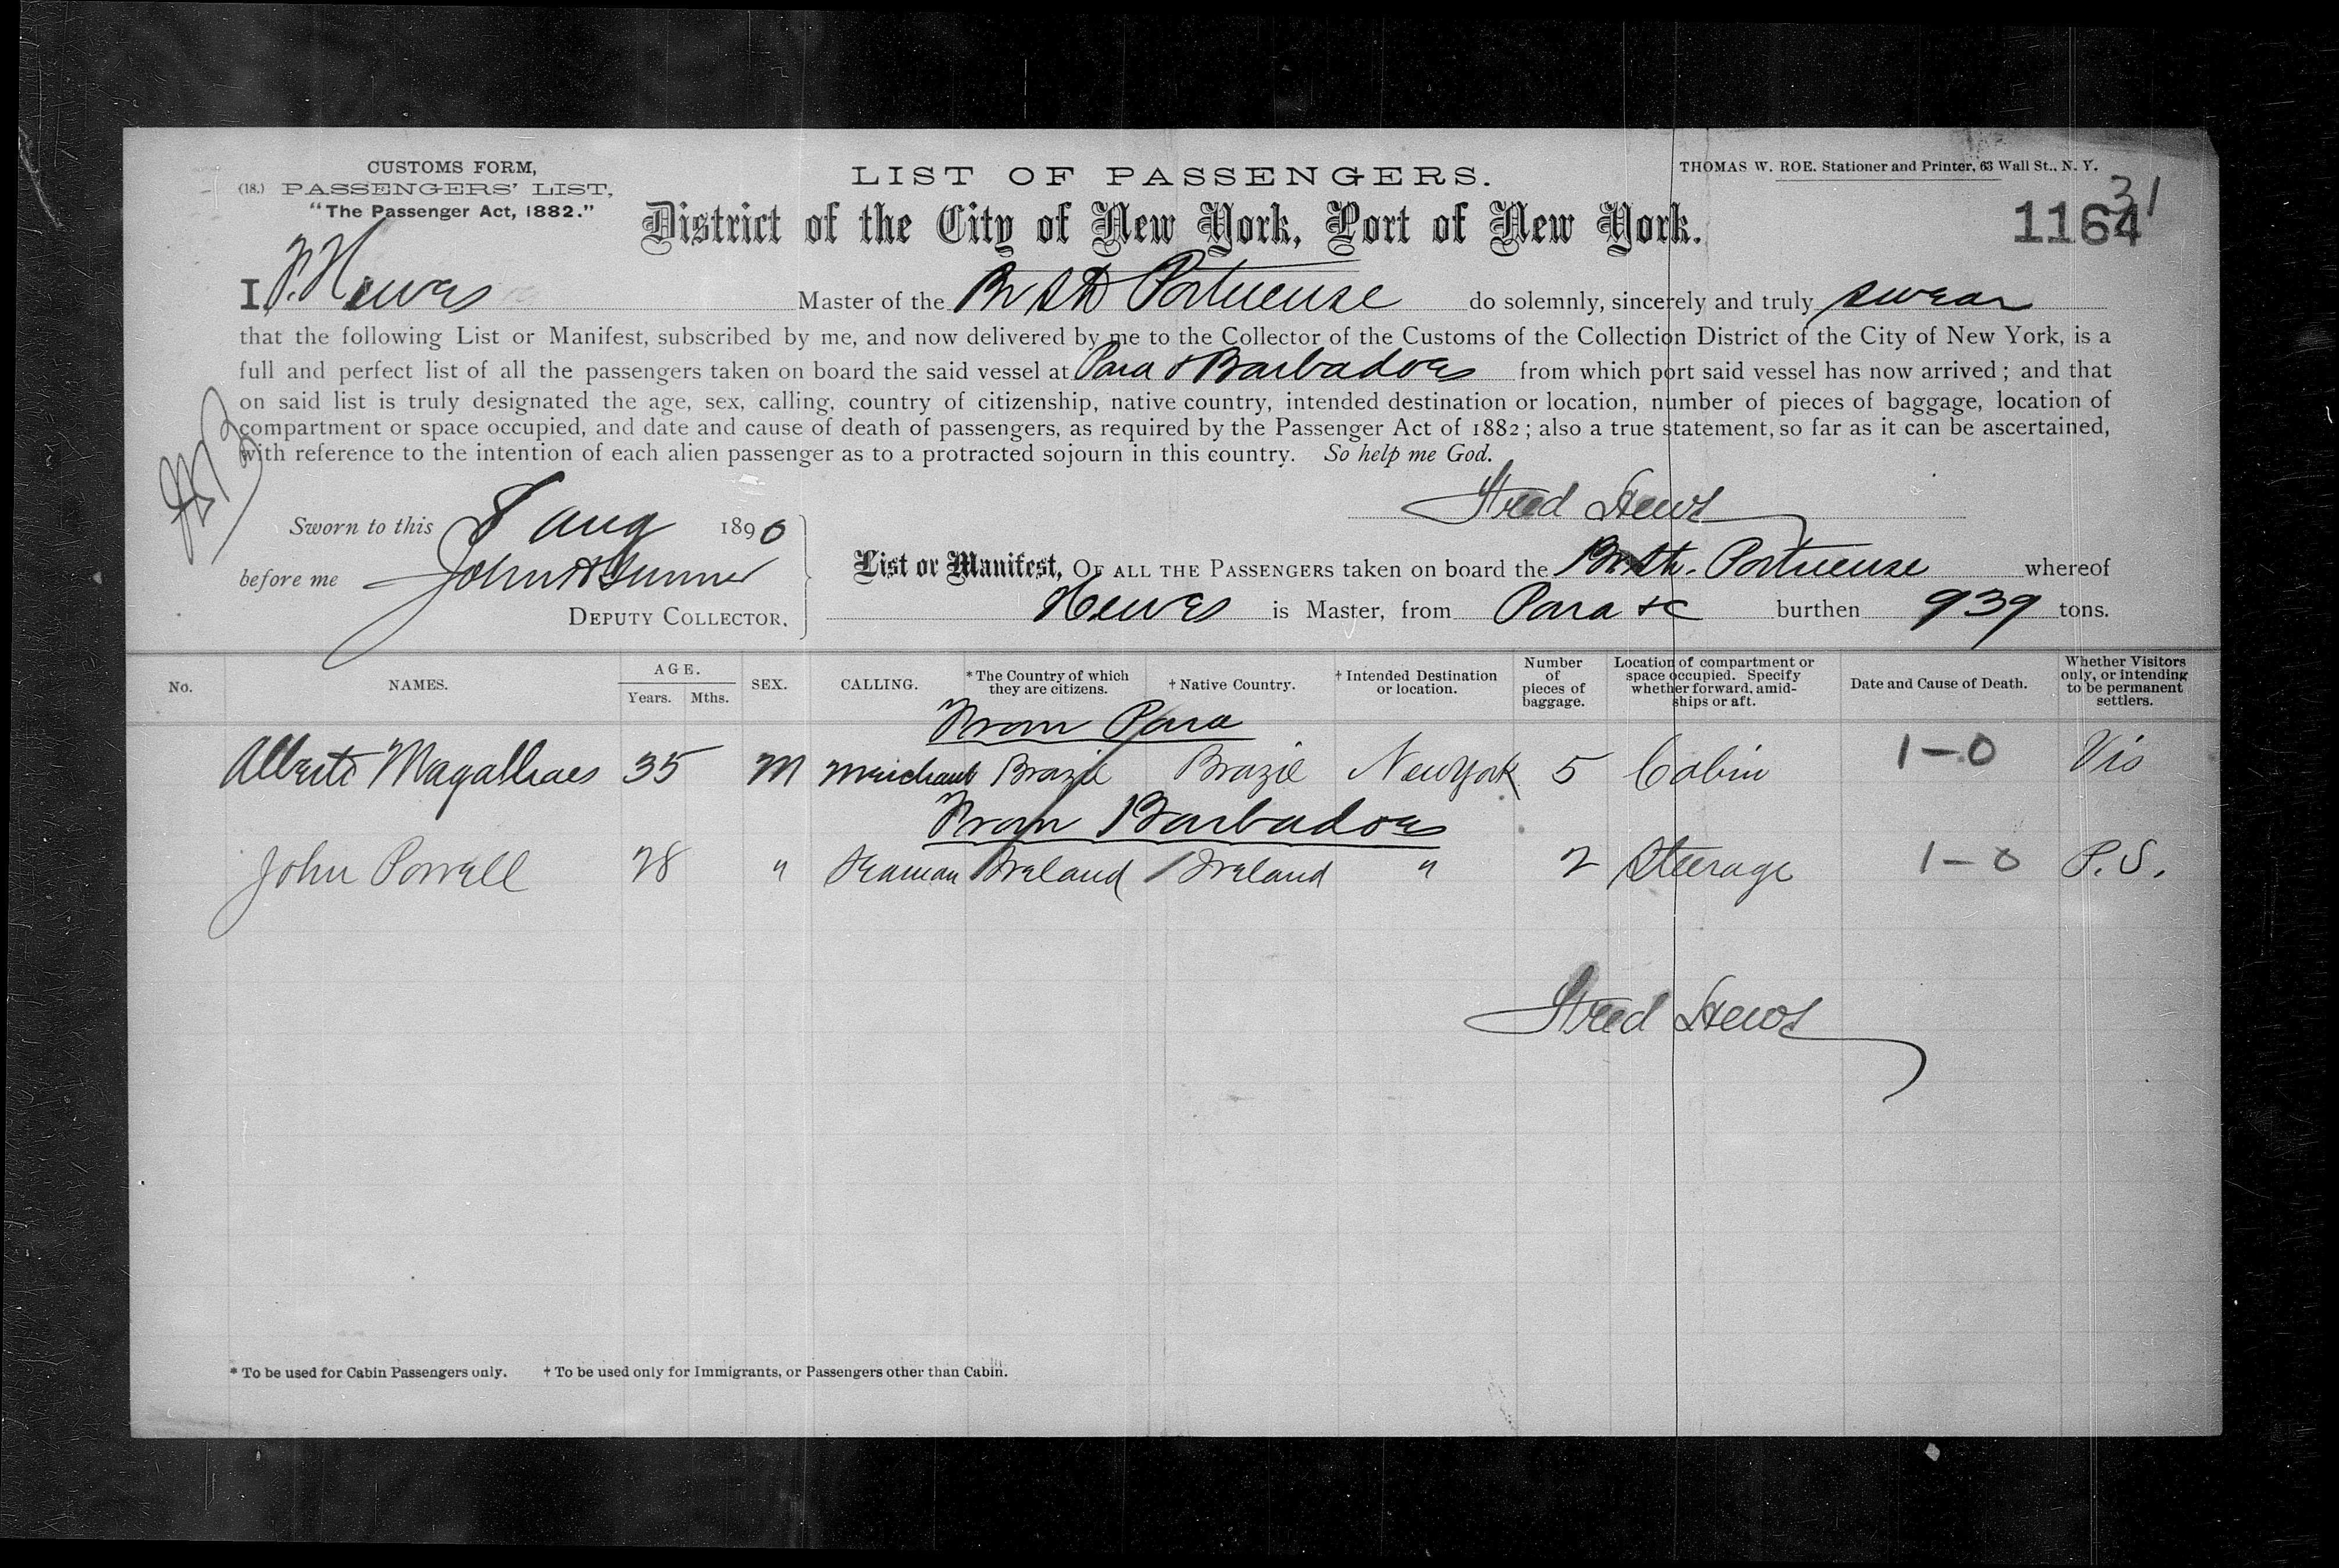 CUSTOMS FORM,
(18.) PASSENGERS' LIST,
"The Passenger Act, 1882."
LIST OF PASSENGERS.
THOMAS W. ROE. Stationer and Printer, 63 Wall St., N. Y.
31
District of the City of New York, Port of New York.
1164
I F. Hewes Master of the Br Str Portuense do solemnly, sincerely and truly swear
that the following List or Manifest, subscribed by me, and now delivered by me to the Collector of the Customs of the Collection District of the City of New York, is a
full and perfect list of all the passengers taken on board the said vessel at Para & Barbadoes from which port said vessel has now arrived; and that
on said list is truly designated the age, sex, calling, country of citizenship, native country, intended destination or location, number of pieces of baggage, location of
compartment or space occupied, and date and cause of death of passengers, as required by the Passenger Act of 1882; also a true statement, so far as it can be ascertained,
with reference to the intention of each alien passenger as to a protracted sojourn in this country. So help me God.
Fred Hews
Sworn to this 8 Aug 1890
before me John A Gunner
DEPUTY COLLECTOR.
List or Manifest, OF ALL THE PASSENGERS taken on board the Br. Str. Portuense whereof
Hewes is Master, from Para &c burthen 939 tons.
No. NAMES. AGE. Years. Mths. SEX. CALLING. *The Country of which they are citizens. † Native Country. † Intended Destination or location. Number of pieces of baggage. Location of compartment or space occupied. Specify whether forward, amidships or aft. Date and Cause of Death. Whether Visitors only, or intending to be permanent settlers.
From Para
Alberto Magalhaes 35 M Merchant Brazil Brazil New York 5 Cabin 1-0 Vis
From Barbadoes
John Powell 28 " Seaman Ireland Ireland " 2 Steerage 1-0 P.S.
Fred Hews
* To be used for Cabin Passengers only. † To be used only for Immigrants, or Passengers other than Cabin.